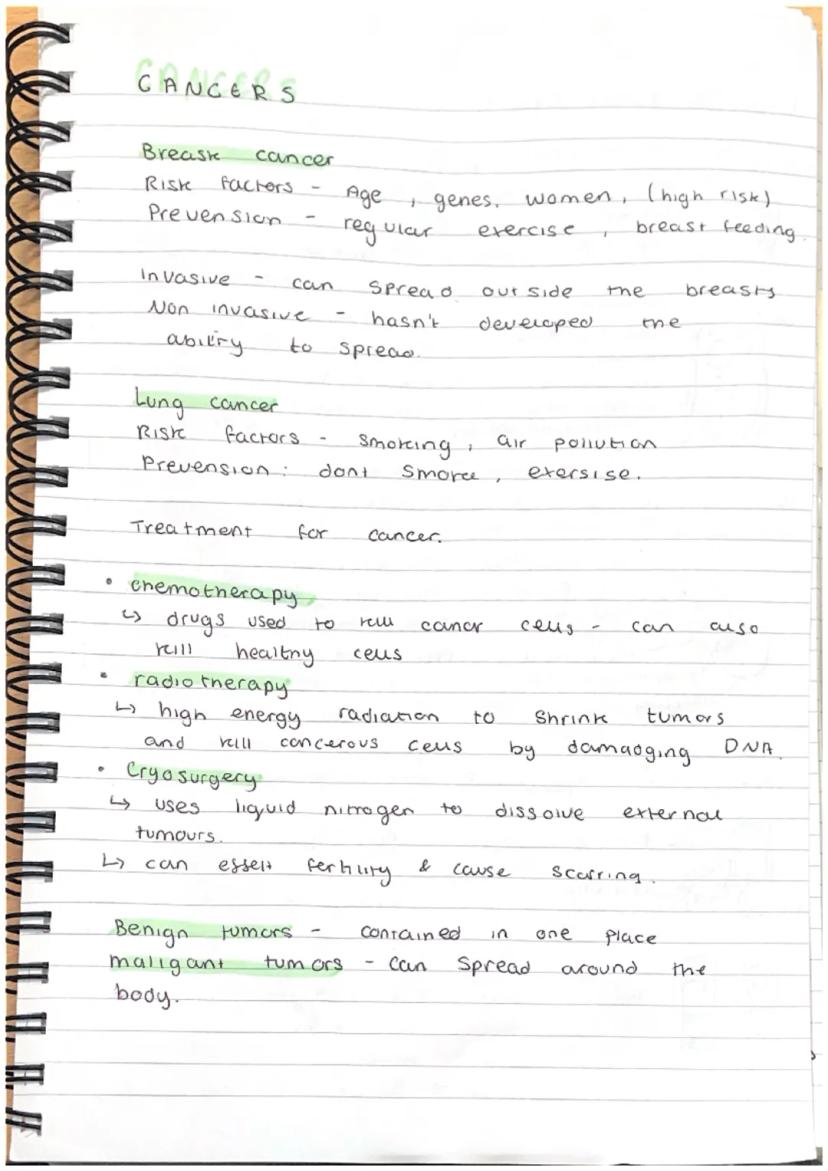 CANCERS
Breast cancer
Risk factors - Age, genes, women, (high risk)
Prevension - regular exercise, breast feeding
Invasive - can spread outside the breasts
Non invasive - hasn't developed the
ability to spread.
Lung cancer
Risk factors - smoking, air pollution
Prevension: dont smoke, exersise.
Treatment for cancer.
• chemotherapy
↳ drugs used to kill cancer cells - can also
kill healthy cells
• radiotherapy
↳ high energy radiation to shrink tumors
and kill cancerous cells by damadging DNA.
• Cryosurgery
↳ uses liquid nitrogen to dissolve external
tumours.
↳ can essect fertility & cause scarring.
Benign tumors - contained in one place
maligant tumors - can spread around the
body.